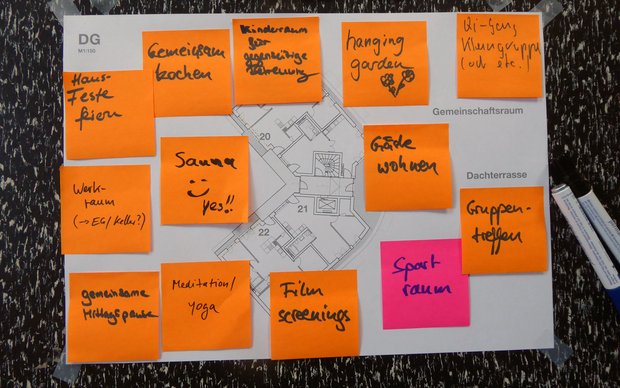 DG
M1:100
Gemeinsam
kochen
Kinderraum
für
gegenseitige
Betreuung
hanging
garden
Qi-Gong
(oder etc.!
Haus-
Feste
feiern
Gemeinschaftsraum
20
Sauna
yes!!
Gäste
wohnen
Dachterrasse
Werk-
raum
(→ EG/Keller?)
21
22
Gruppen-
treffen
Sport
raum
gemeinsame
Mittagspause
Meditation/
Yoga
Film
screenings